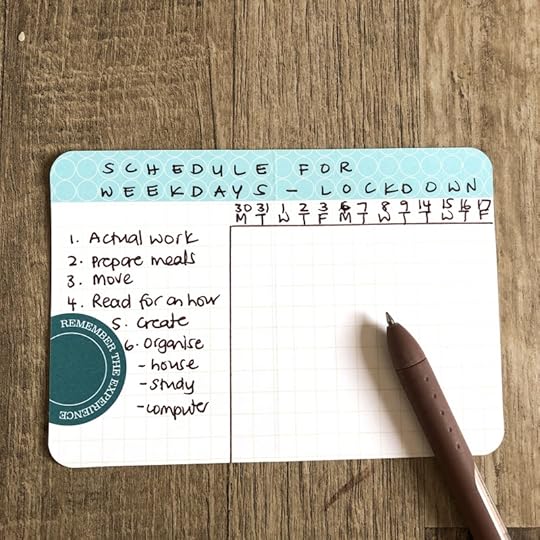 SCHEDULE FOR
WEEKDAYS - LOCKDOWN
30 31 1 2 3 6 7 8 9 14 15 16 17
M T W T F M T W T T W T F
1. Actual work
2. Prepare meals
3. Move
4. Read for an hour
5. Create
6. Organise
- house
- study
- computer
REMEMBER THE EXPERIENCE